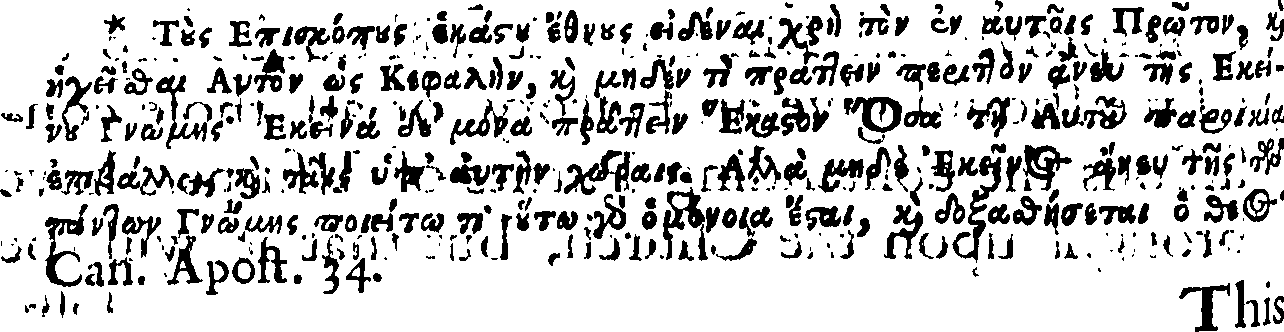 * Τοὺς Επισκόπους ἑκάστου ἔθνους εἰδέναι χρὴ τὸν ἐν ἀυτοῖς Πρῶτον, κỳ
ἡγεῖσθαι Αυτὸν ὡς Κεφαλὴν, κỳ μηδέν τὶ πράττειν περιττὸν ἄνευ τῆς Εκεί-
νου Γνώμης· Εκεῖνά δὲ μόνα πράττειν Ἕκαστον Ὅσα τῇ Αυτοῦ παροικίᾳ
ἐπιβάλλει κỳ ταῖς ὑπ' ἀυτὴν χώραις. Αλλὰ μηδὲ Ἐκεῖνος ἄνευ τῆς τῶν
πάντων Γνώμης ποιείτω τὶ· οὕτω γὰρ ὁμόνοια ἔσται, κỳ δοξασθήσεται ὁ θεὸς·
Can. Apoſt. 34.
This